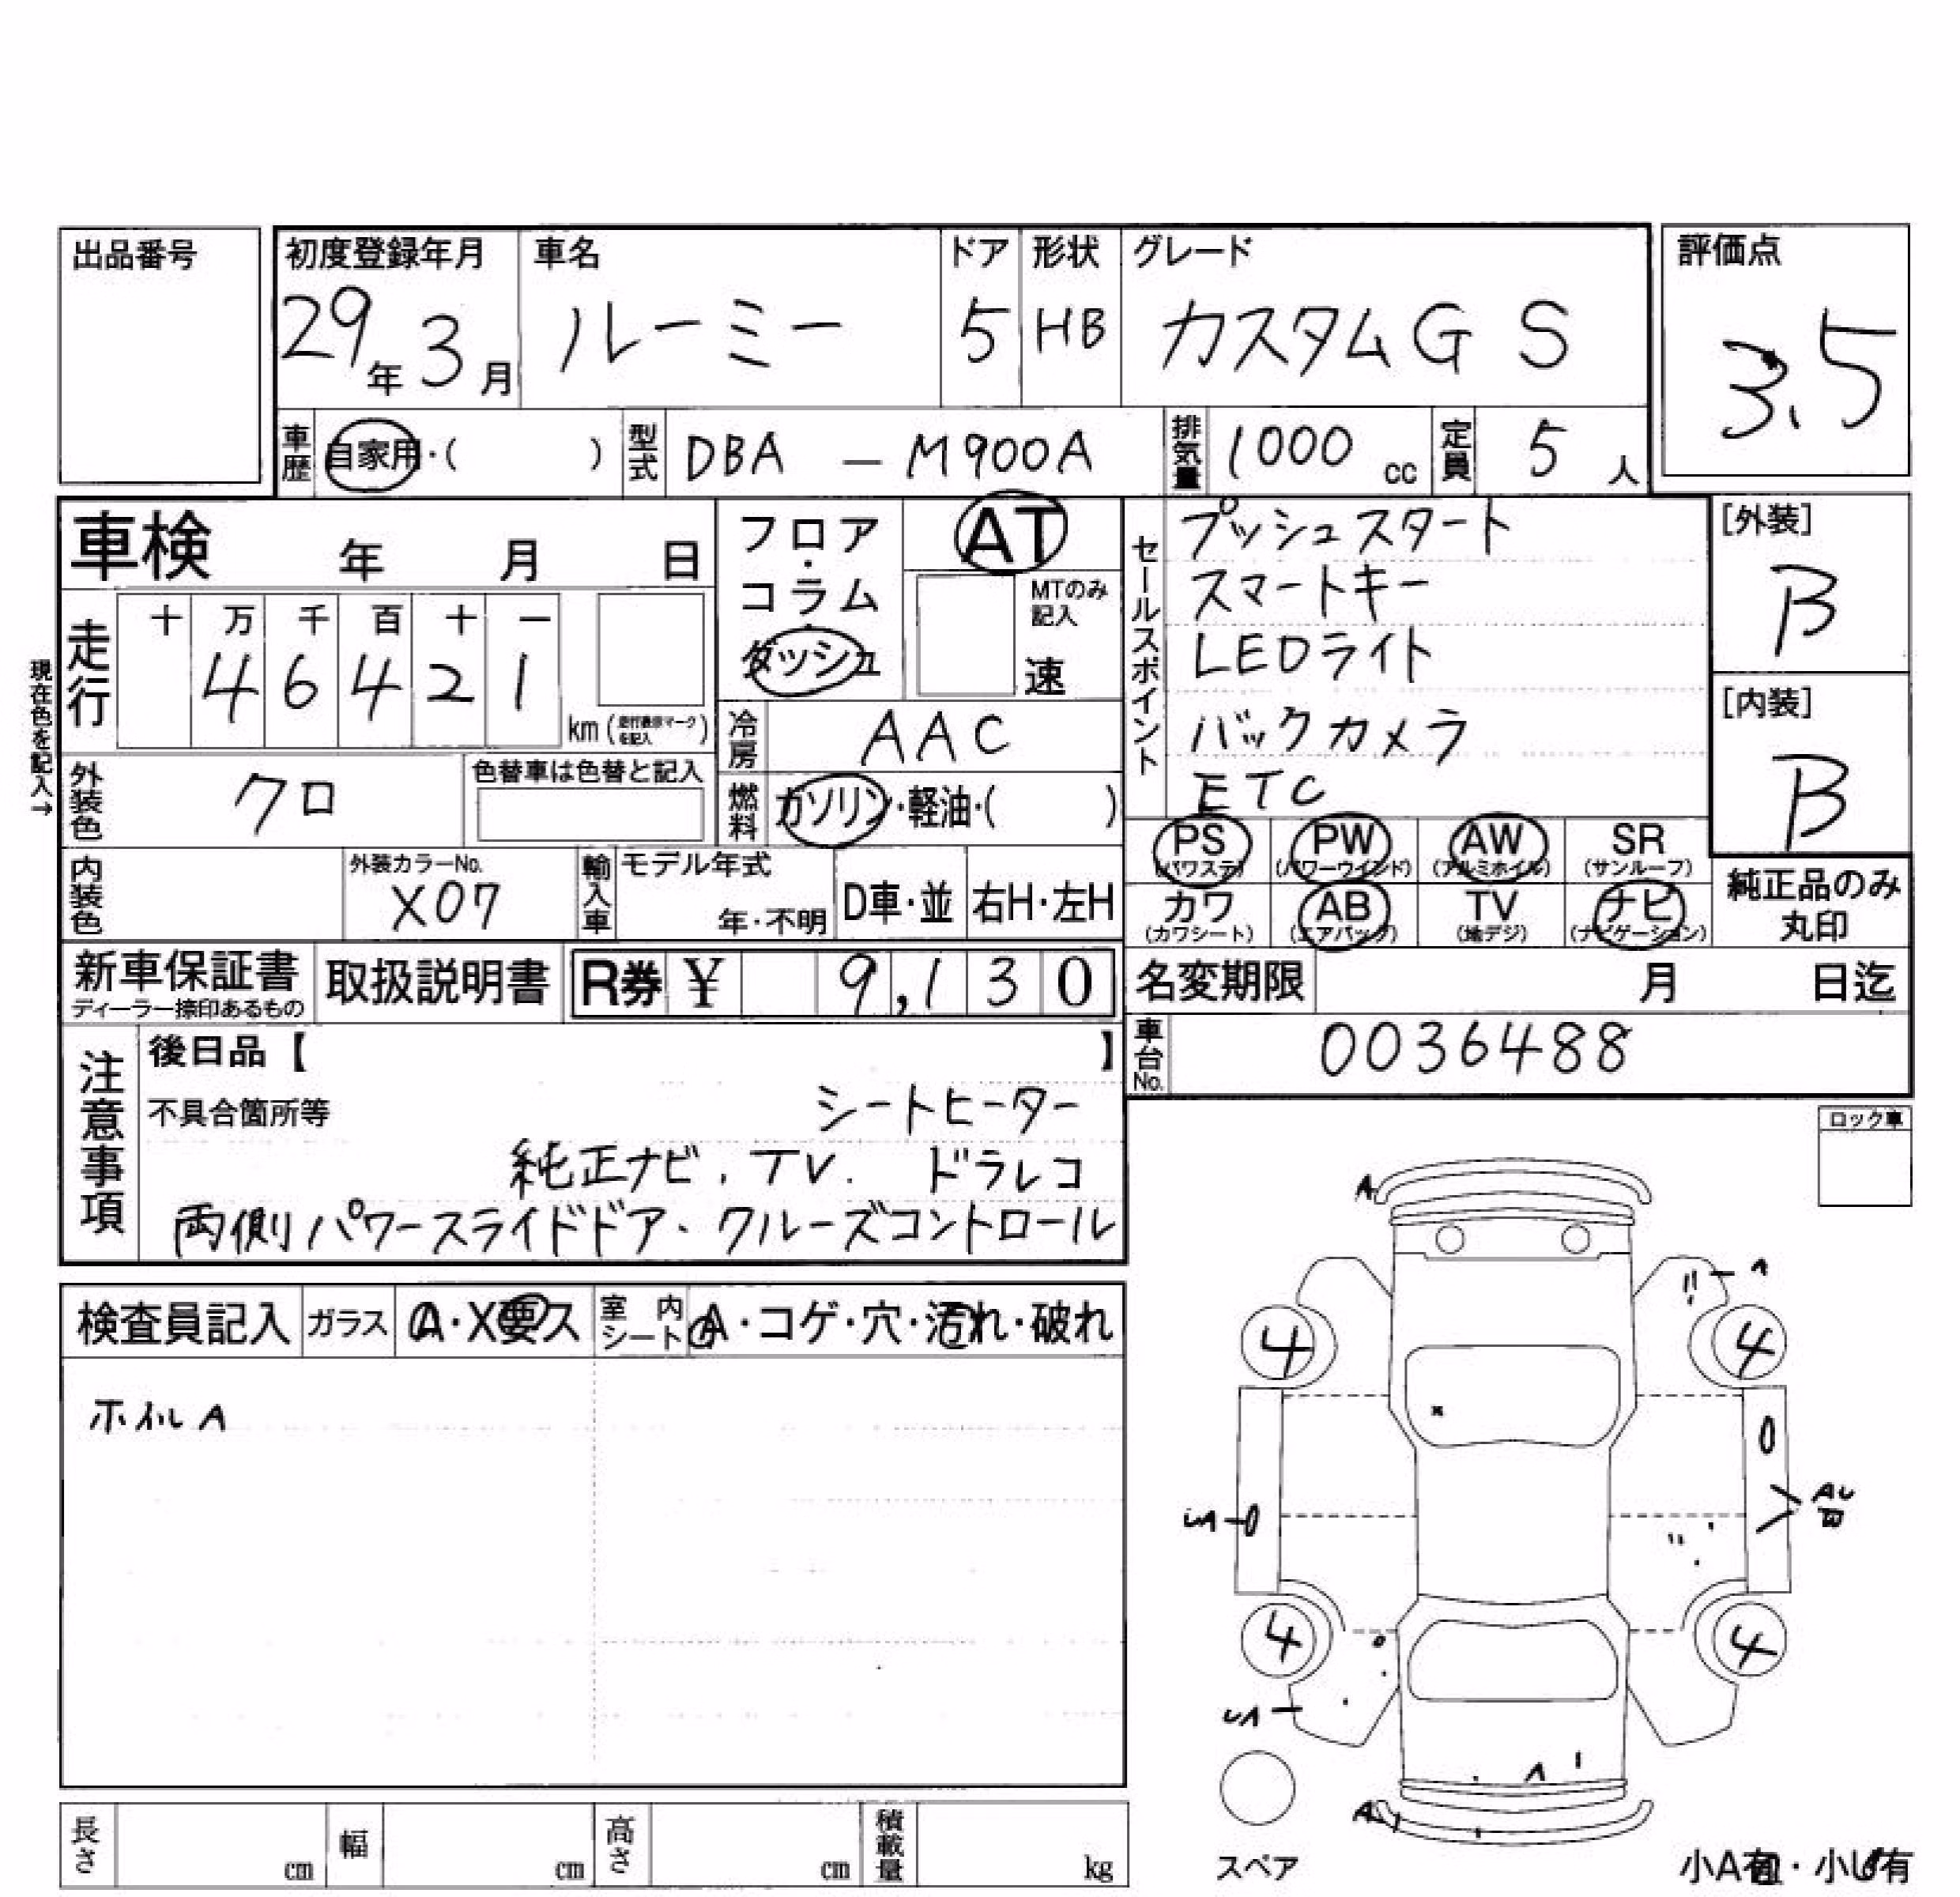 出品番号
初度登録年月 車名 ドア 形状 グレード 評価点
29年 3月 ルーミー 5 HB カスタムG S 3.5
車歴 自家用・( ) 型式 DBA — M900A 排気量 1000 cc 定員 5 人
車検 年 月 日
フロア・コラム ダッシュ
AT
MTのみ記入
速
セールスポイント
プッシュスタート
スマートキー
LEDライト
バックカメラ
ETC
[外装]
B
[内装]
B
現在色を記入→
走行 十 万 千 百 十 一
4 6 4 2 1
km (走行表示マークを記入)
冷房 AAC
燃料 ガソリン・軽油・( )
外装色 クロ 色替車は色替と記入
内装色 外装カラーNo. X07
輸入車 モデル年式 年・不明 D車・並 右H・左H
PS (パワステ) PW (パワーウインド) AW (アルミホイル) SR (サンルーフ)
カワ (カワシート) AB (エアバッグ) TV (地デジ) ナビ (ナビゲーション)
純正品のみ
丸印
新車保証書 ディーラー捺印あるもの 取扱説明書 R券 ¥ 9,130
名変期限 月 日迄
車台No. 0036488
注意事項
後日品【 】
不具合箇所等 シートヒーター
純正ナビ. TV. ドラレコ
両側パワースライドドア、クルーズコントロール
ロック車
検査員記入 ガラス A・X要ス 室内シート A・コゲ・穴・汚れ・破れ
ホイルA
A
A
4 4
UA
AU
4 4
UA
A
A
スペア
小A有・小U有
長さ cm 幅 cm 高さ cm 積載量 kg